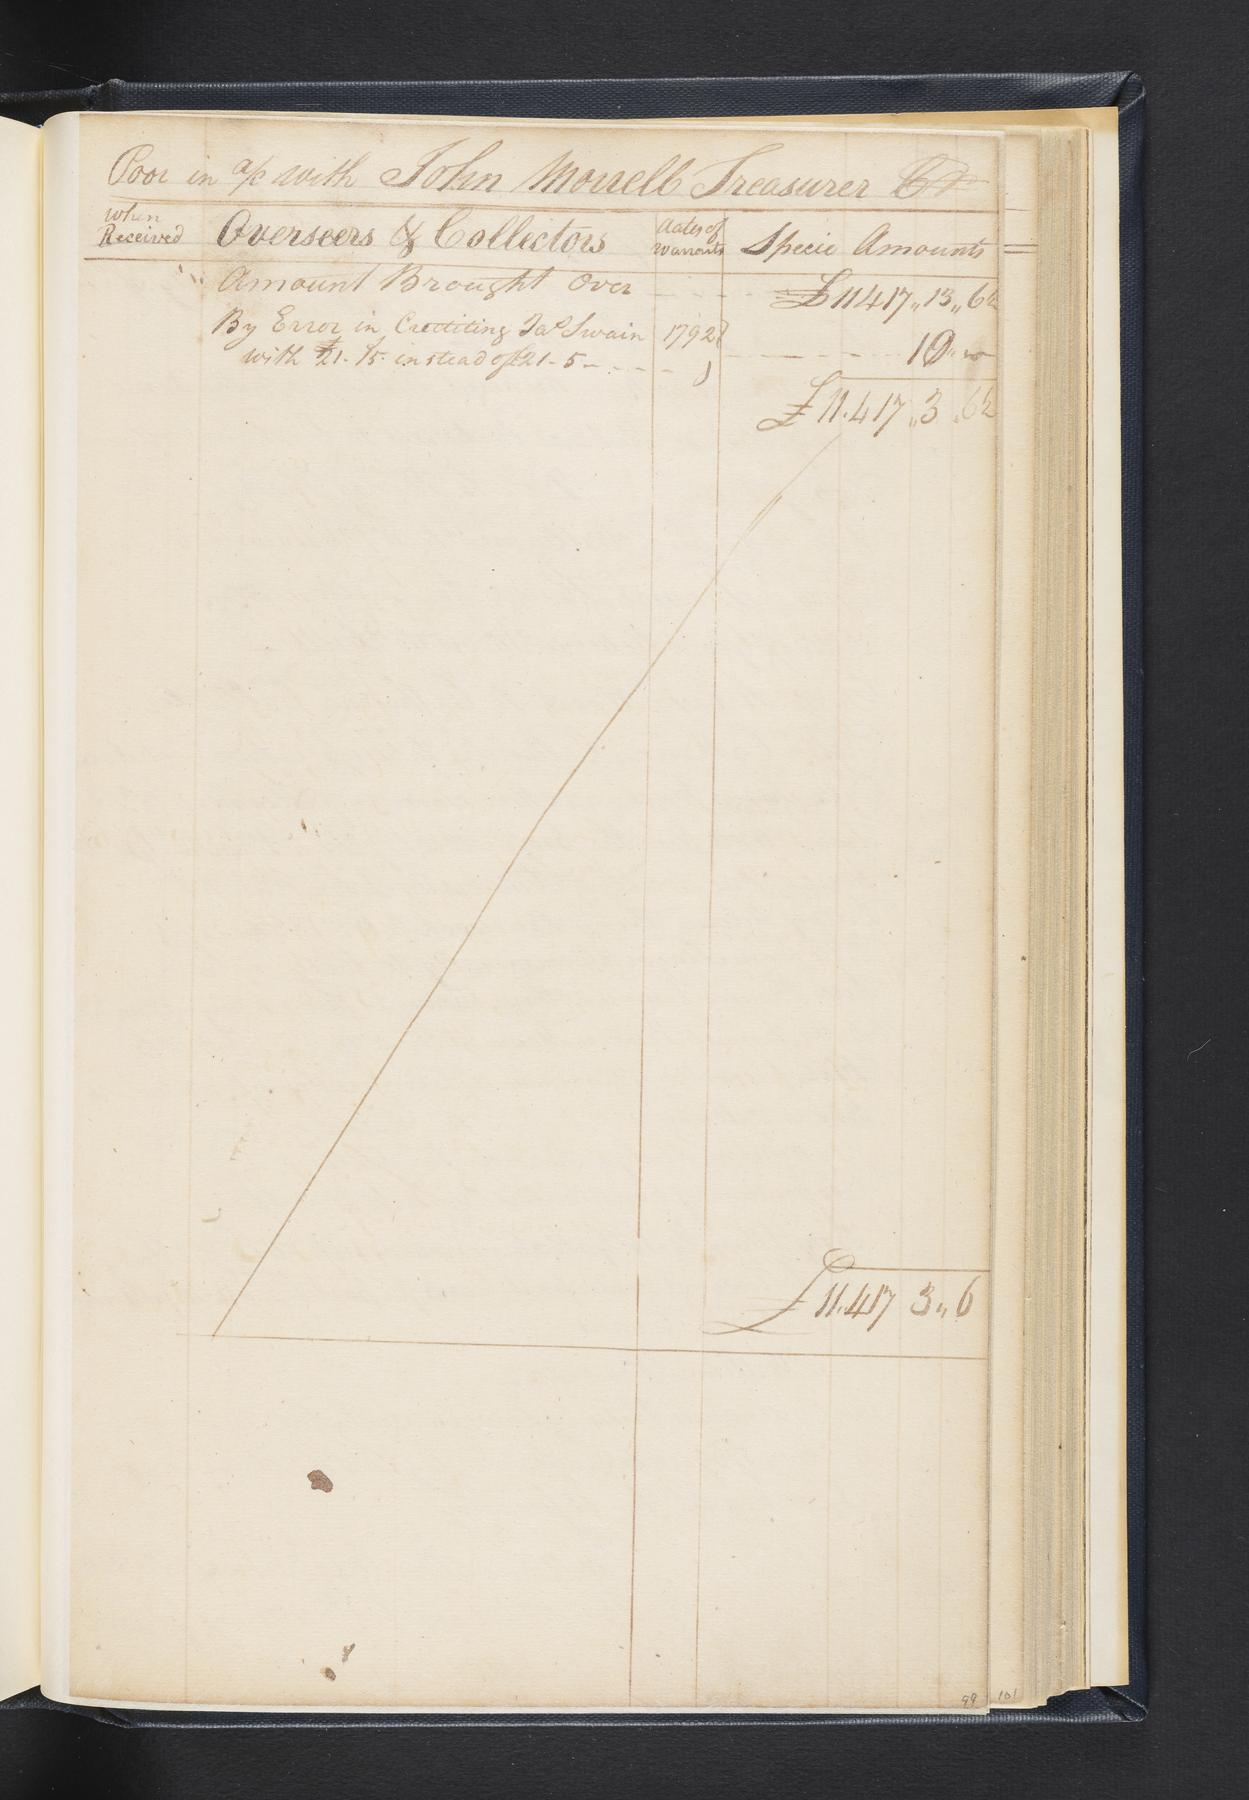 Poor in a/c with John Morrell Treasurer Cr
When Received Overseers & Collectors dates of warrants Specie Amounts
Amount Brought Over £11417,,13,,6½
By Error in Crediting Jas Swain 1792
with £21-15 instead of £21-5 10,,
£11.417,,3,,6½
£11.417 3,,6
99 101